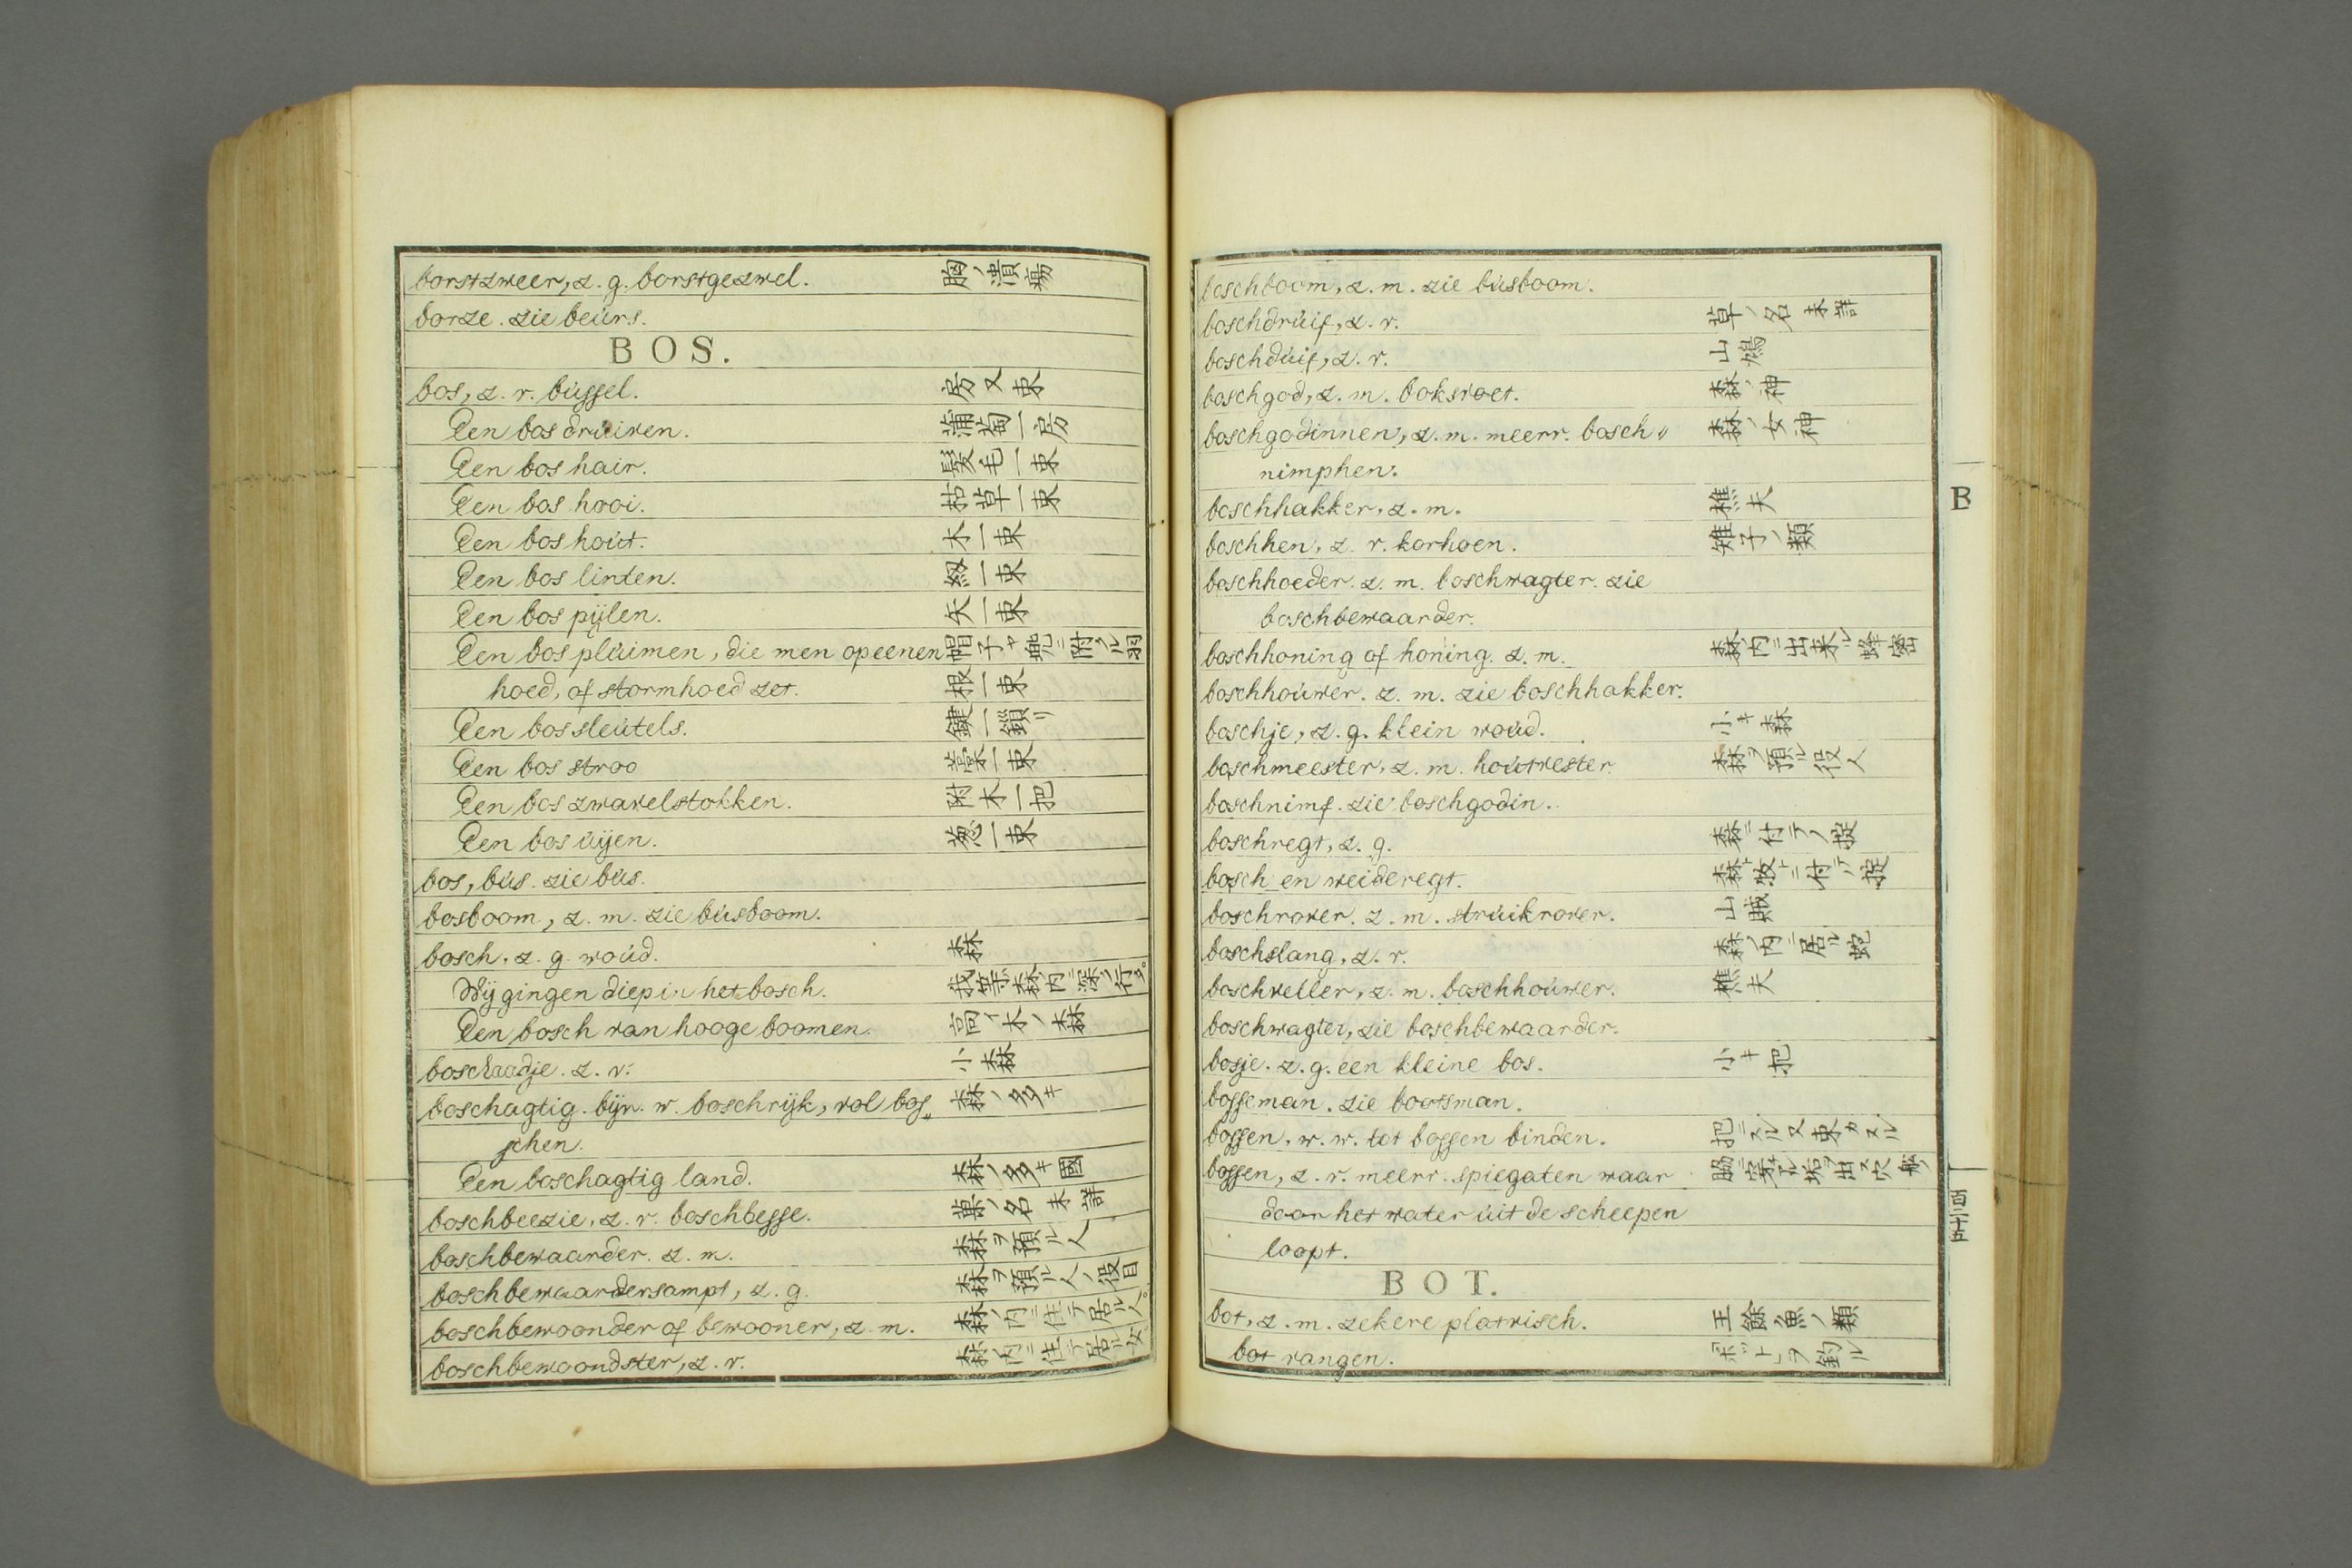 borstzweer, z. g. borstgezwel. 胸ノ潰瘍
borze. zie beúrs.
BOS.
bos, z. r. bússel. 房又束
Een bos drúiven. 蒲萄一房
Een bos hair. 髪毛一束
Een bos hooi. 枯草一束
Een bos hoút. 木一束
Een bos linten. 一束
Een bos pijlen. 矢一束
Een bos plúimen, die men op eenen 帽子ヤ兜ニ附ケル羽
hoed, of stormhoed zet. 根一束
Een bos sleútels. 鍵一鎖リ
Een bos stroo 藁一束
Een bos zwavelstokken. 附木一把
Een bos úijen. 葱一束
bos, bús. zie bús.
bosboom, z. m. zie búsboom.
bosch, z. g. woúd. 森
Wij gingen diep in het bosch. 我等ガ森ノ内ニ深ク行タ。
Een bosch van hooge boomen. 高イ木ノ森
boschaadje. z. v. 小森
boschagtig. bijv. w. boschrijk, vol bos„ 森ノ多キ
schen.
Een boschagtig land. 森ノ多キ國
boschbeezie, z. v. boschbesse. 菓ノ名 未詳
boschbewaarder. z. m. 森ヲ預ル人
boschbewaardersampt, z. g. 森ヲ預ル人ノ役目
boschbewoonder of bewooner, z. m. 森ノ内ニ住テ居ル人。
boschbewoondster, z. v. 森ノ内ニ住テ居ル女
boschboom, z. m. zie búsboom.
boschdrúif, z. v. 草ノ名 未詳
boschdúif, z. v. 山鳩
boschgod, z. m. boksvoet. 森ノ神
boschgodinnen, z. m. meerv. bosch„ 森ノ女神
nimphen.
boschhakker, z. m. 樵夫
boschhen, z. v. korhoen. 雉子ノ類
boschhoeder. z. m. boschwagter. zie
boschbewaarder.
boschhoning of honing. z. m. 森ノ内ニ出来ル蜂密
boschhoúwer. z. m. zie boschhakker.
boschje, z. g. klein woúd. 小キ森
boschmeester, z. m. hoútvester 森ヲ預ル役人
boschnimf. zie boschgodin.
boschregt, z. g. 森ニ付テノ掟
bosch en weideregt. 森ト牧トニ付テノ掟
boschrover. z. m. strúikrover. 山賊
boschslang, z. v. 森ノ内ニ居ル蛇
boschveller, z. m. boschhoúwer. 樵夫
boschwagter, zie boschbewaarder.
bosje. z. g. een kleine bos. 小キ把
bosseman. zie bootsman.
bossen, w. w. tot bossen binden. 把ニスル又束カヌル
bossen, z. v. meerv. spiegaten waar
door het water úit de scheepen
loopt.
BOT.
bot, z. m. zekere platvisch. 王餘魚ノ類
bot vangen. 「ボット」ヲ釣ル
B
百二十五